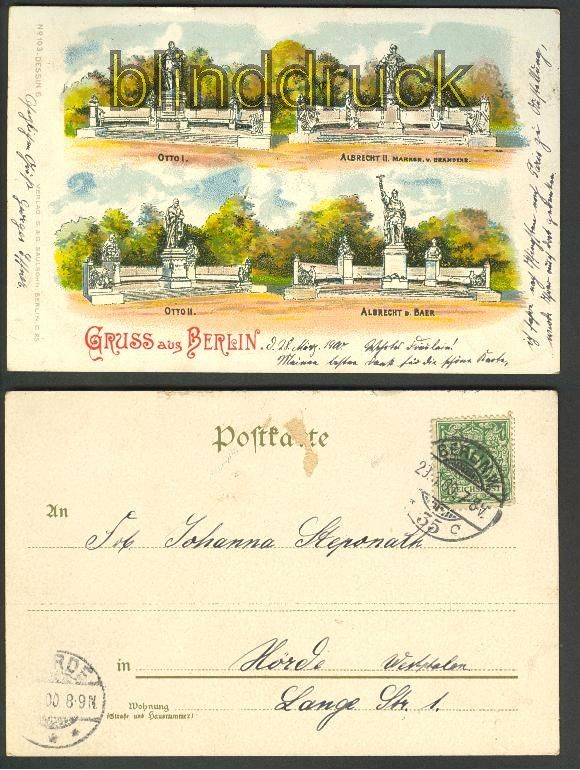 blinddruck
No 103. DESSIN 6.
VERLAG S. & G. SAULSOHN BERLIN C. 25
OTTO I.
ALBRECHT II. MARKGR. V. BRANDENB.
OTTO II.
ALBRECHT D. BAER
GRUSS aus BERLIN.
d. 28. März. 1900 Fräulein!
Meinen besten Dank für die schöne Karte,
ich auf Paris zu
Postkarte
BERLIN.W.
35 c
An
Frl. Johanna Steponath
in Hörde Westfalen
RDE
00 8-9N
Wohnung
(Straße und Hausnummer)
Lange Str. 1.